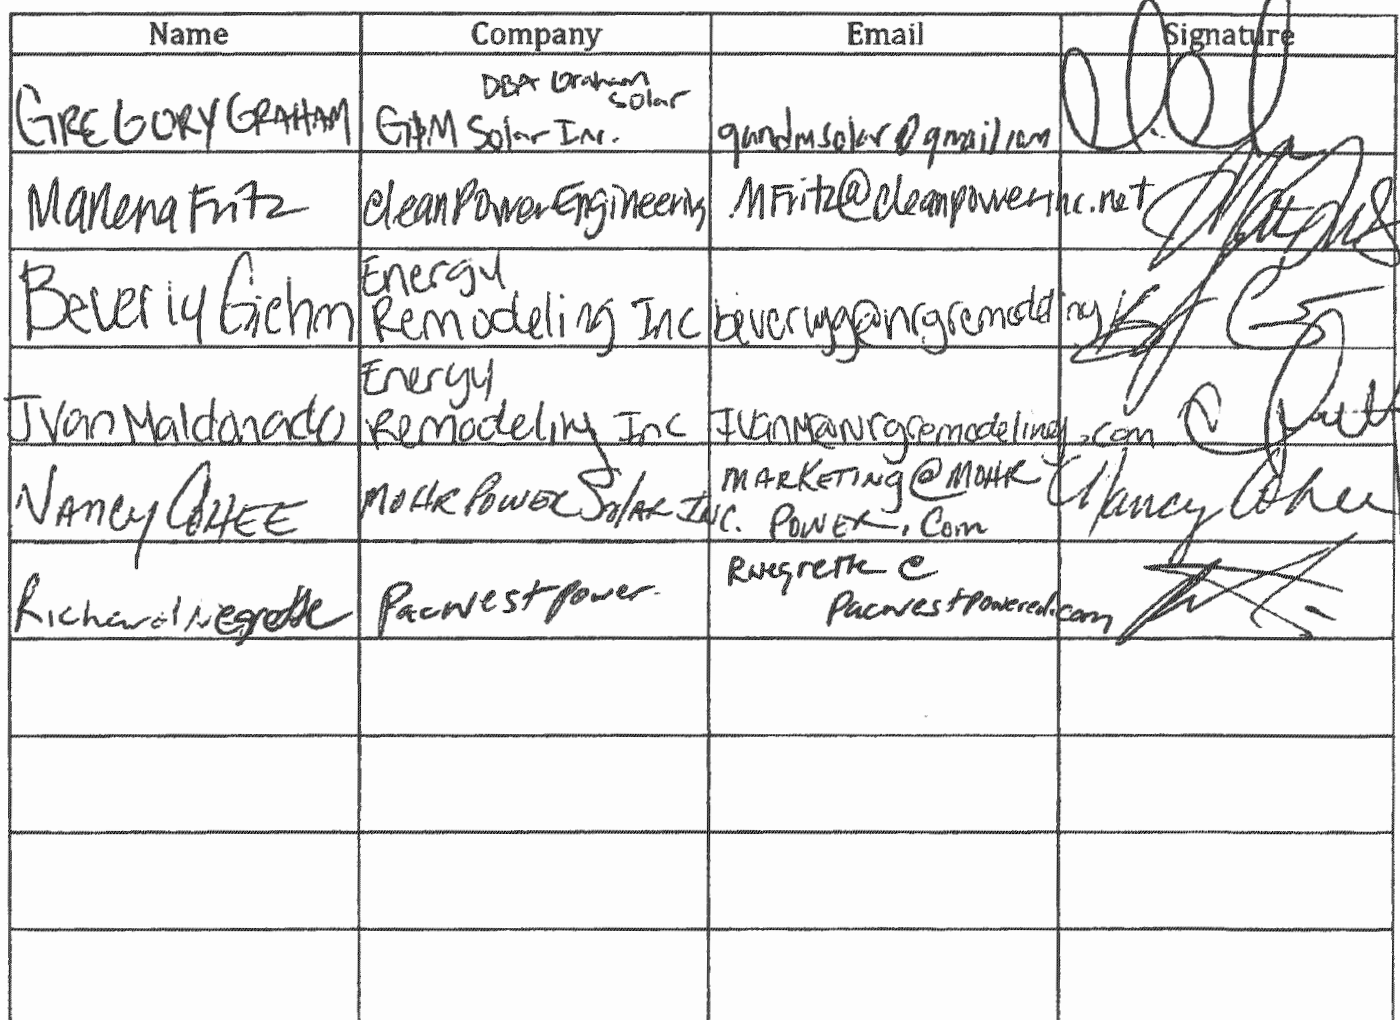 Name Company Email Signature
DBA Graham
Solar
GREGORY GRAHAM G&M Solar Inc. gandmsolar@gmail.com
Marlena Fritz Clean Power Engineering MFritz@cleanpowerinc.net
Energy
Beverly Giehm Remodeling Inc beverlyg@nrgremodeling
Energy
Ivan Maldonado Remodeling Inc IvanM@nrgremodeling.com
NANCY COHEE MOHR POWER SOLAR INC. MARKETING@MOHR Nancy Cohee
POWER.COM
Richard Negrette Pacwest Power. Rnegrette@
Pacwestpowered.com